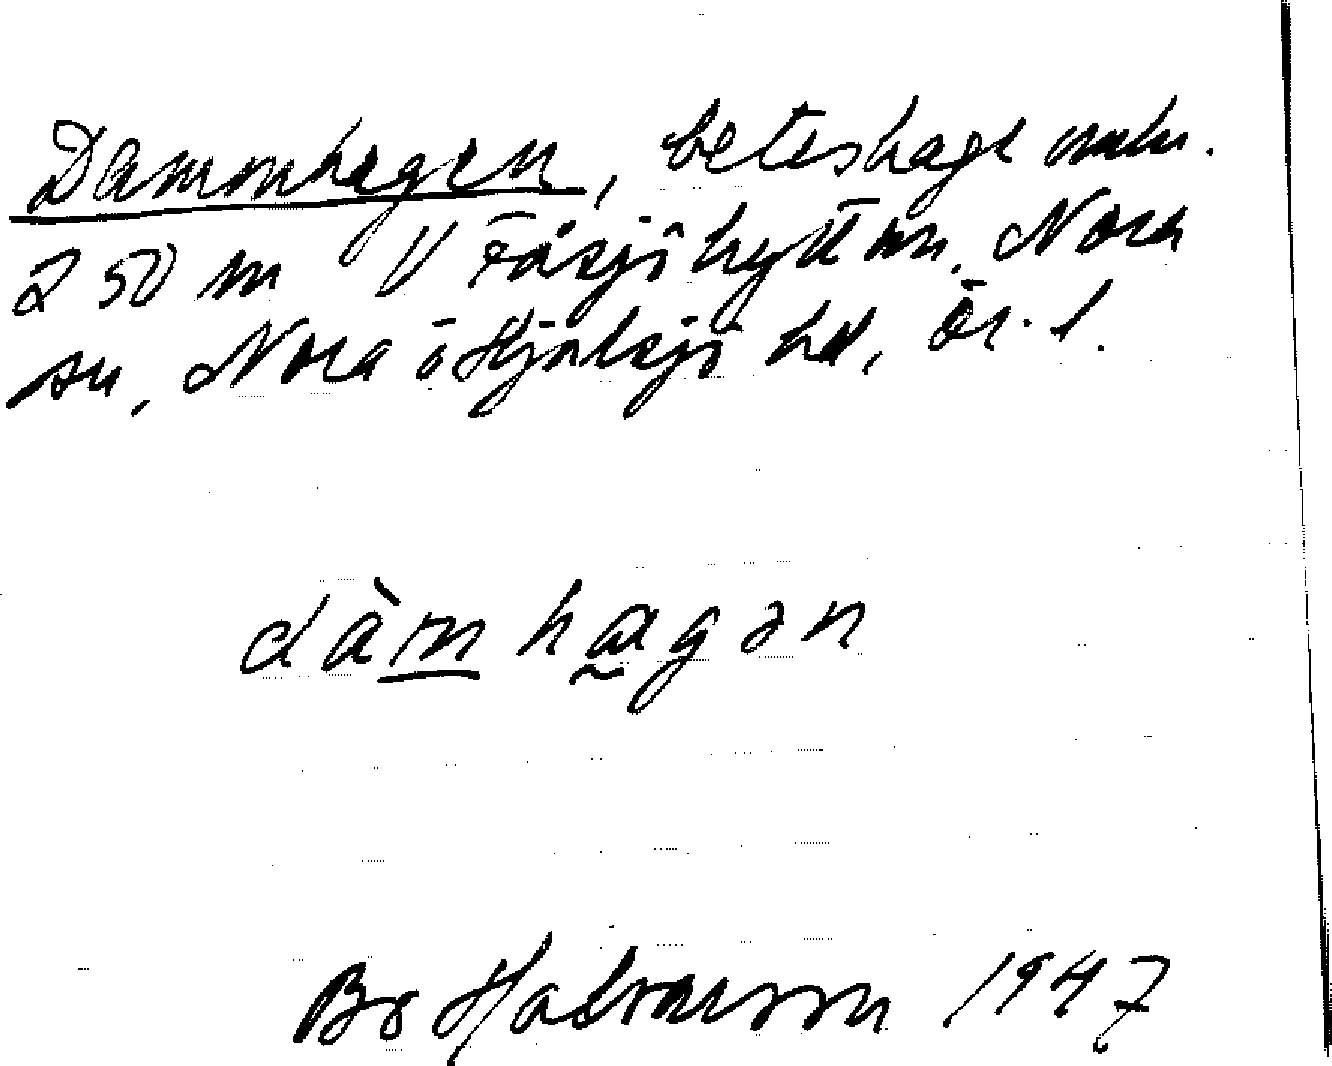 Dammhagen, beteshage omkr.
250 m V Fåsjöhyttan, Nora
sn, Nora ö Hjulsjö hd, Ör. l.
dàm hagən
Bo Halvarsson 1947